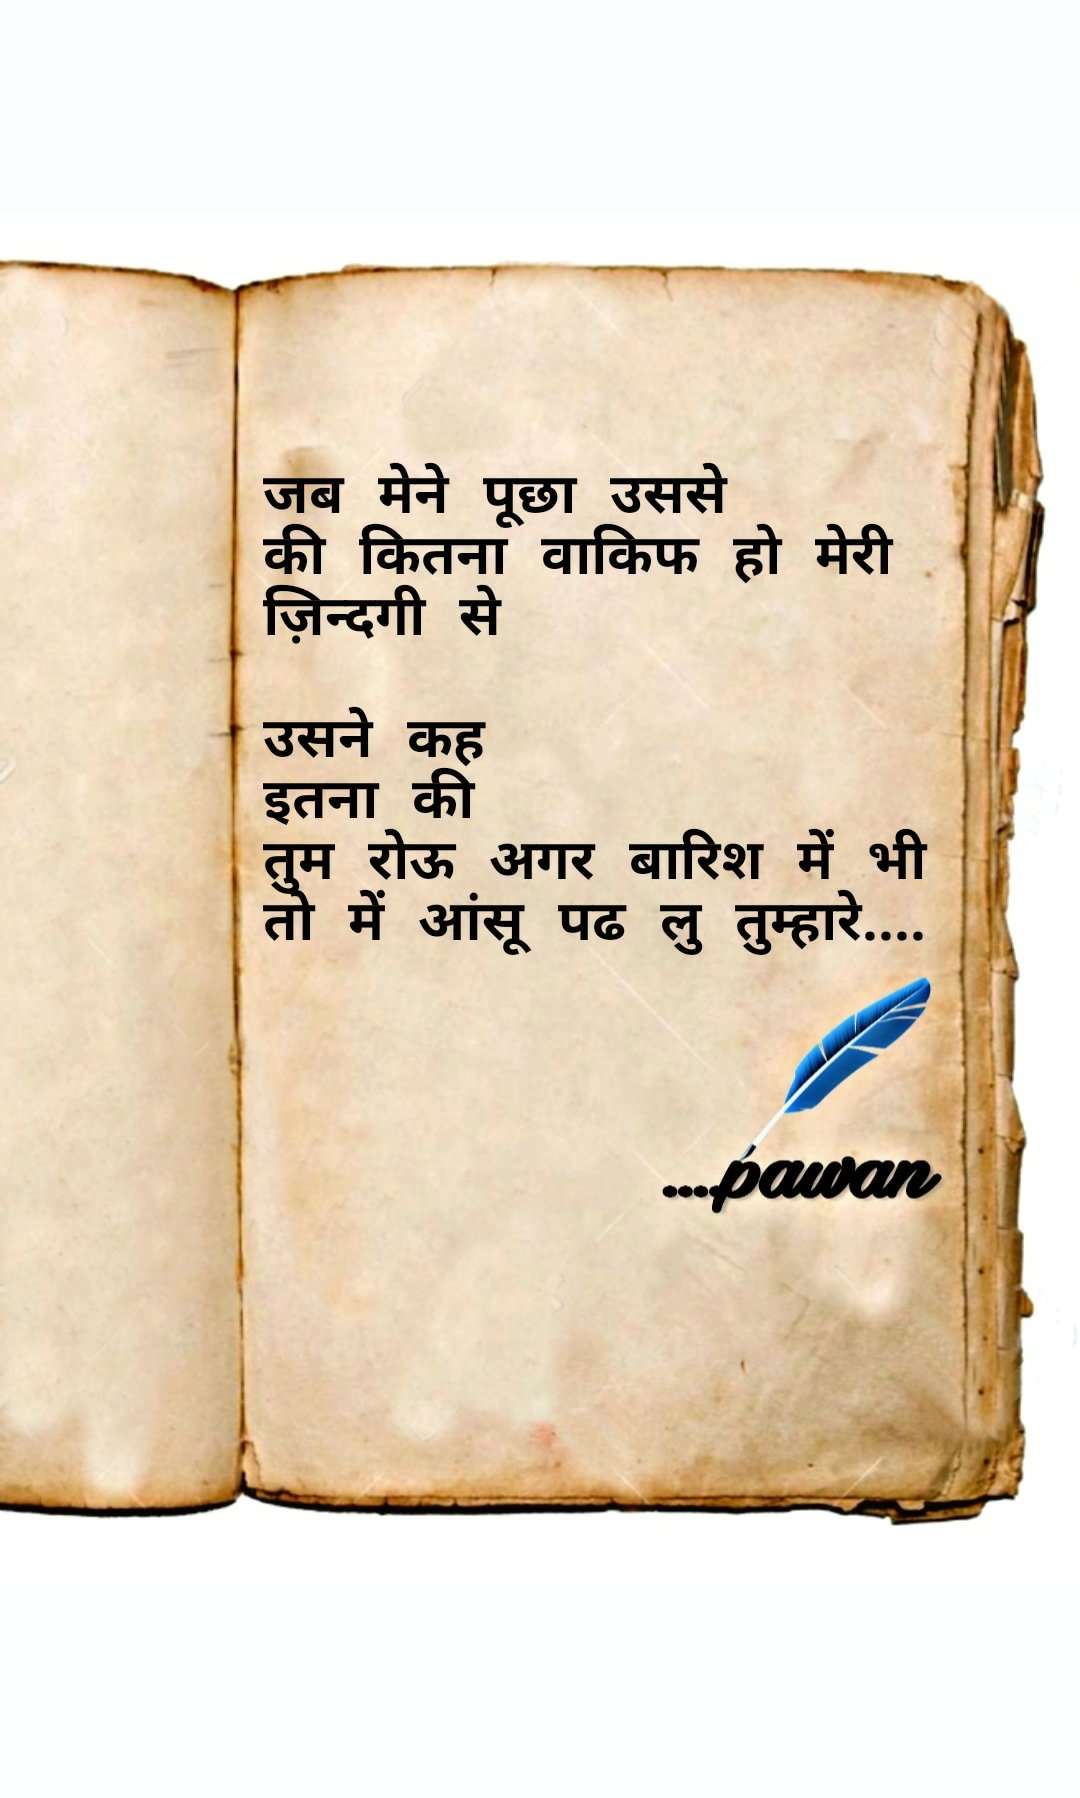 जब मेने पूछा उससे
की कितना वाकिफ हो मेरी
ज़िन्दगी से
उसने कह
इतना की
तुम रोऊ अगर बारिश में भी
तो में आंसू पढ लु तुम्हारे....
....pawan